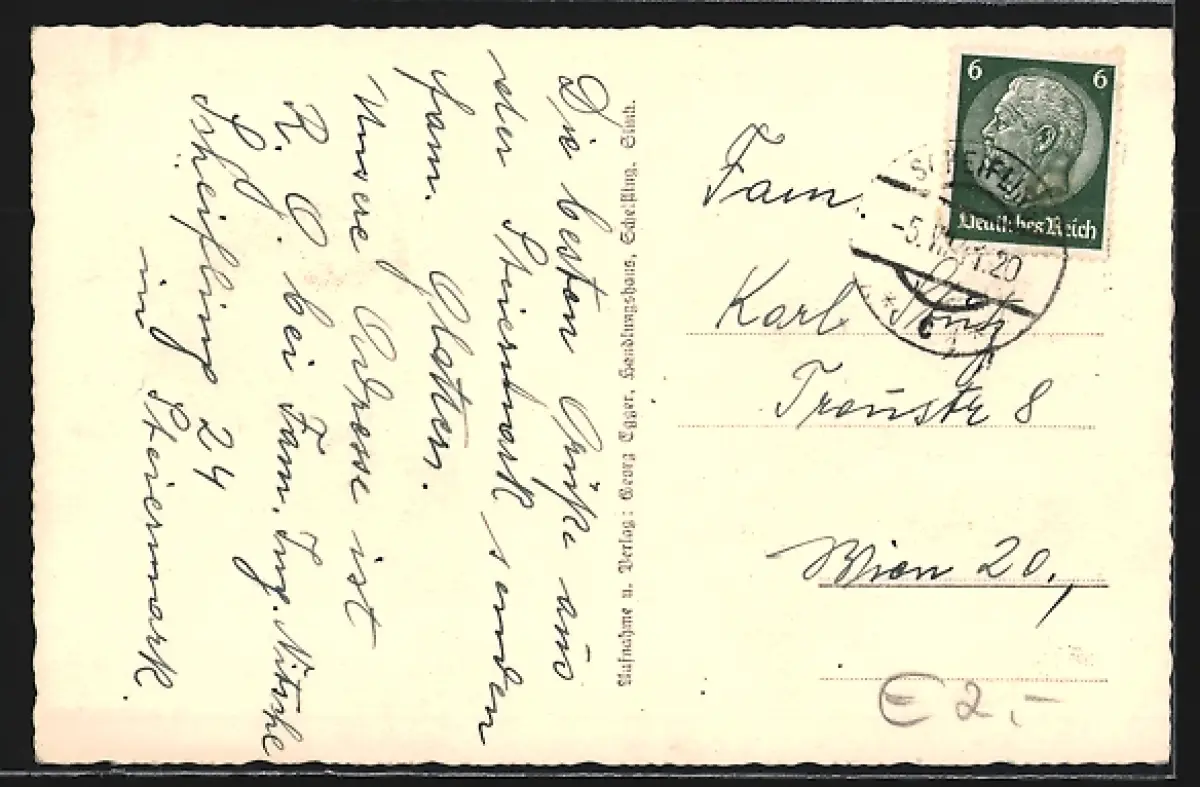 Die besten Grüße aus
der Steiermark senden
fam. Glatter.
Unsere Adresse ist
R. O. bei Fam. Ing. Nitsche
Scheifling 24
in Steiermark.
Aufnahme u. Verlag: Georg Egger, Handlungshaus, Scheifling, Stmk.
6 6
Deutsches Reich
SCHEIFLING
-5. 41.20
* c *
Fam.
Karl
Traustr 8
Wien 20.,
€ 2,-